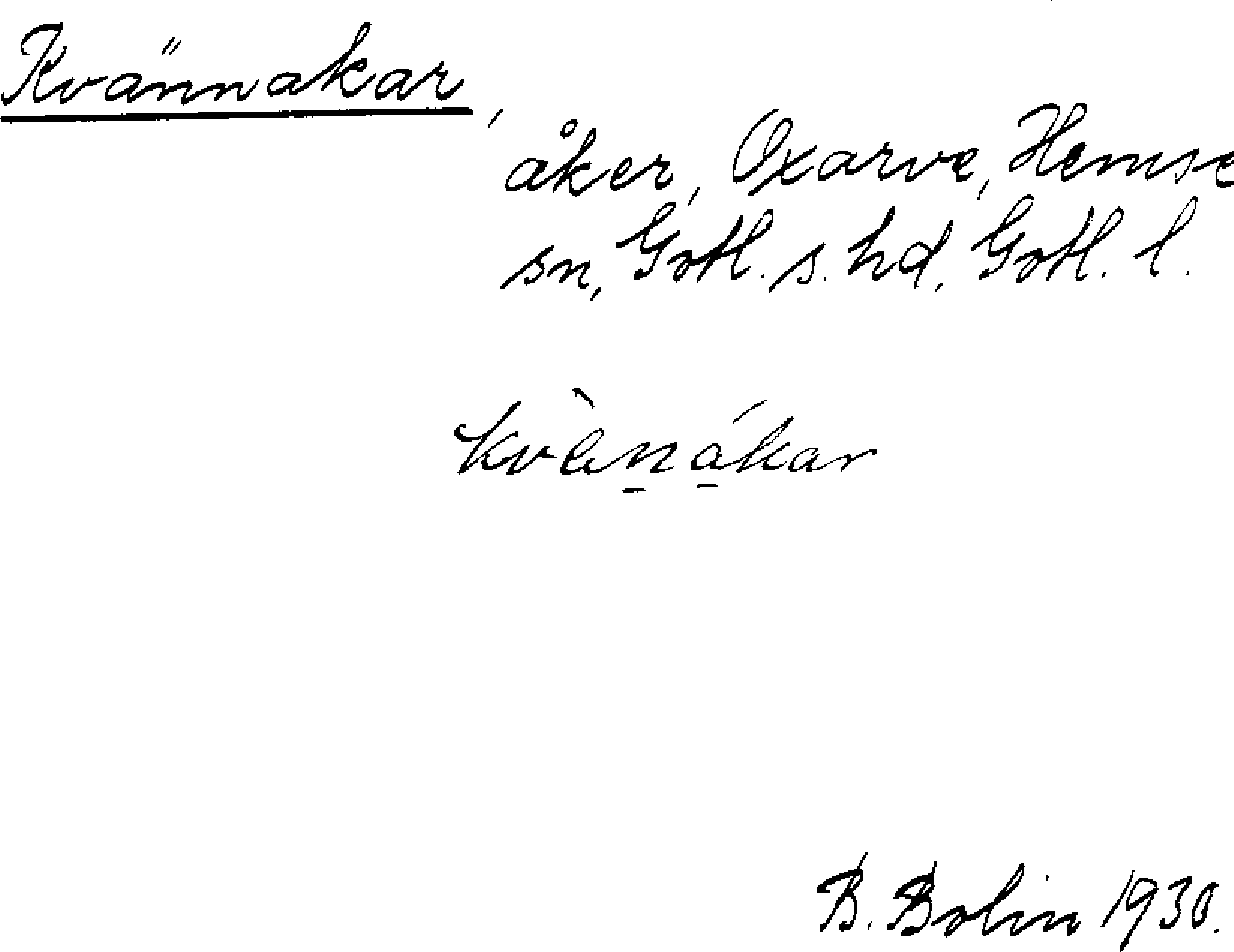 Kvännakar,
åker, Oxarve, Hemse
sn, Gotl. s. hd, Gotl. l.
kvä̀n̠á̠kar
B. Bolin 1930.